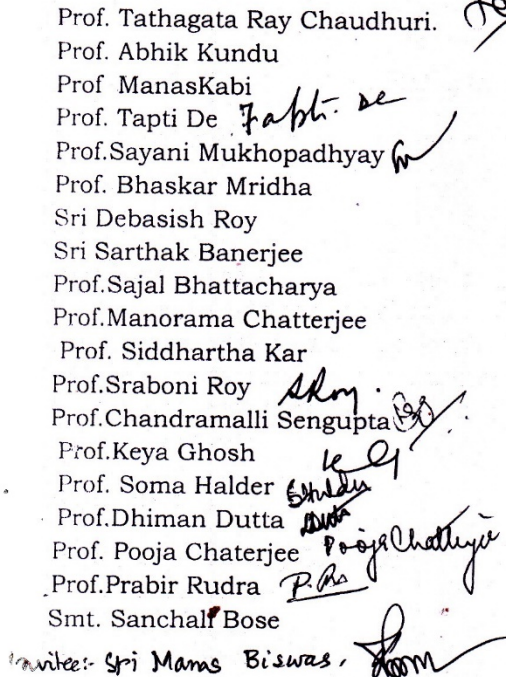 Prof. Tathagata Ray Chaudhuri.
Prof. Abhik Kundu
Prof ManasKabi
Prof. Tapti De Tapti. De
Prof.Sayani Mukhopadhyay
Prof. Bhaskar Mridha
Sri Debasish Roy
Sri Sarthak Banerjee
Prof.Sajal Bhattacharya
Prof.Manorama Chatterjee
Prof. Siddhartha Kar
Prof.Sraboni Roy SRoy.
Prof.Chandramalli Sengupta
Prof.Keya Ghosh
Prof. Soma Halder SHalder
Prof.Dhiman Dutta Dutta
Prof. Pooja Chaterjee Pooja Chatterjee
Prof.Prabir Rudra
Smt. Sanchali Bose
Invitee:- Sri Manas Biswas,